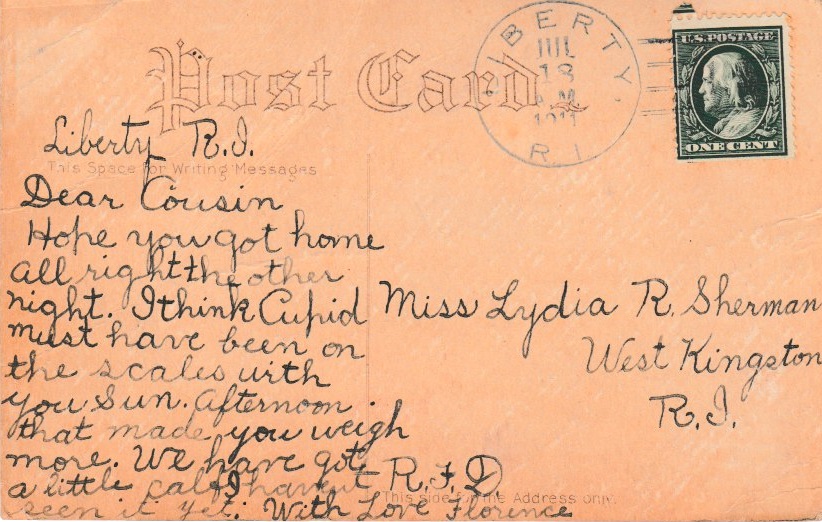 Post Card
LIBERTY,
JUL
13
A.M.
1911
R.I.
U.S. POSTAGE
ONE CENT
Liberty R.I.
This Space for Writing Messages
Dear Cousin
Hope you got home
all right the other
night. I think Cupid
must have been on
the scales with
you Sun. afternoon.
that made you weigh
more. We have got
a little calf I havent
seen it yet. With Love Florence
Miss Lydia R. Sherman
West Kingston
R.I.
R.F.D
This side for the Address only.